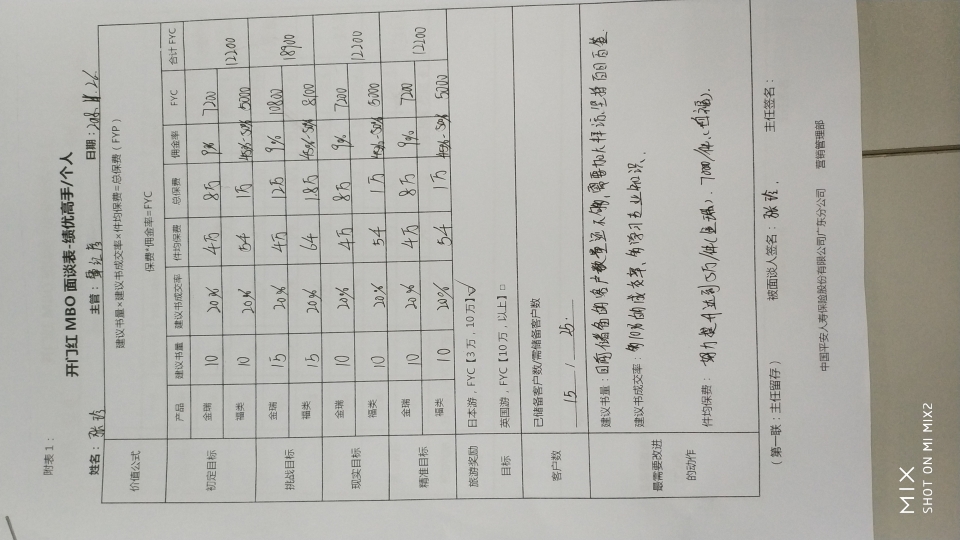 附表1：
开门红 MBO 面谈表-绩优高手/个人
姓名：张玲 主管： 日期：
价值公式 建议书量×建议书成交率×件均保费=总保费（FYP）
保费*佣金率=FYC
产品 建议书量 建议书成交率 件均保费 总保费 佣金率 FYC 合计 FYC
初定目标 金瑞 10 20% 4万 8万 9% 7200 12200
福类 10 20% 5千 1万 45%-50% 5000
挑战目标 金瑞 15 20% 4万 12万 9% 10800 18900
福类 15 20% 6千 1.8万 45%-50% 8100
现实目标 金瑞 10 20% 4万 8万 9% 7200 12200
福类 10 20% 5千 1万 45%-50% 5000
精准目标 金瑞 10 20% 4万 8万 9% 7200 12200
福类 10 20% 5千 1万 45%-50% 5000
旅游奖励目标 日本游，FYC【3万，10万】☑
英国游，FYC【10万，以上】□
客户数 已储备客户数/需储备客户数
15 / 25.
最需要改进的动作 建议书量：目前储备的客户数量还不够,需要加大拜访,坚持
建议书成交率：的成交率、多学习专业知识、
件均保费：努力提升达到5万/件(金瑞). 7000/件.(福).
（第一联：主任留存） 被面谈人签名：张玲. 主任签名：
中国平安人寿保险股份有限公司广东分公司 营销管理部
MIX
SHOT ON MI MIX2